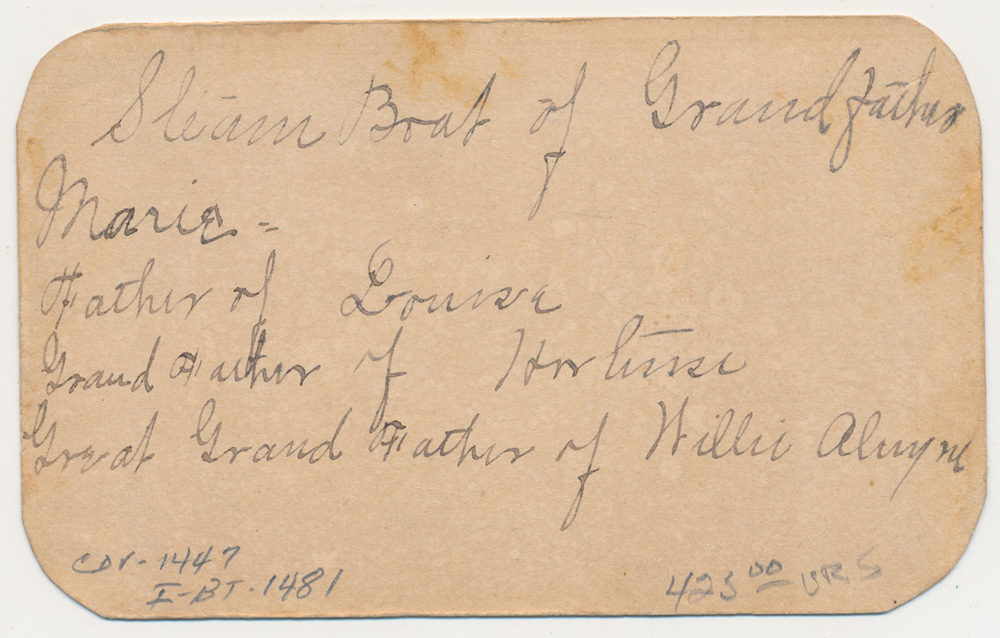 Steam Boat of Grandfather
Marie -
Father of Louise
Grand Father of Hortense
Great Grand Father of Willie Alwyne
CDV-1447
I-BT-1481
425 00